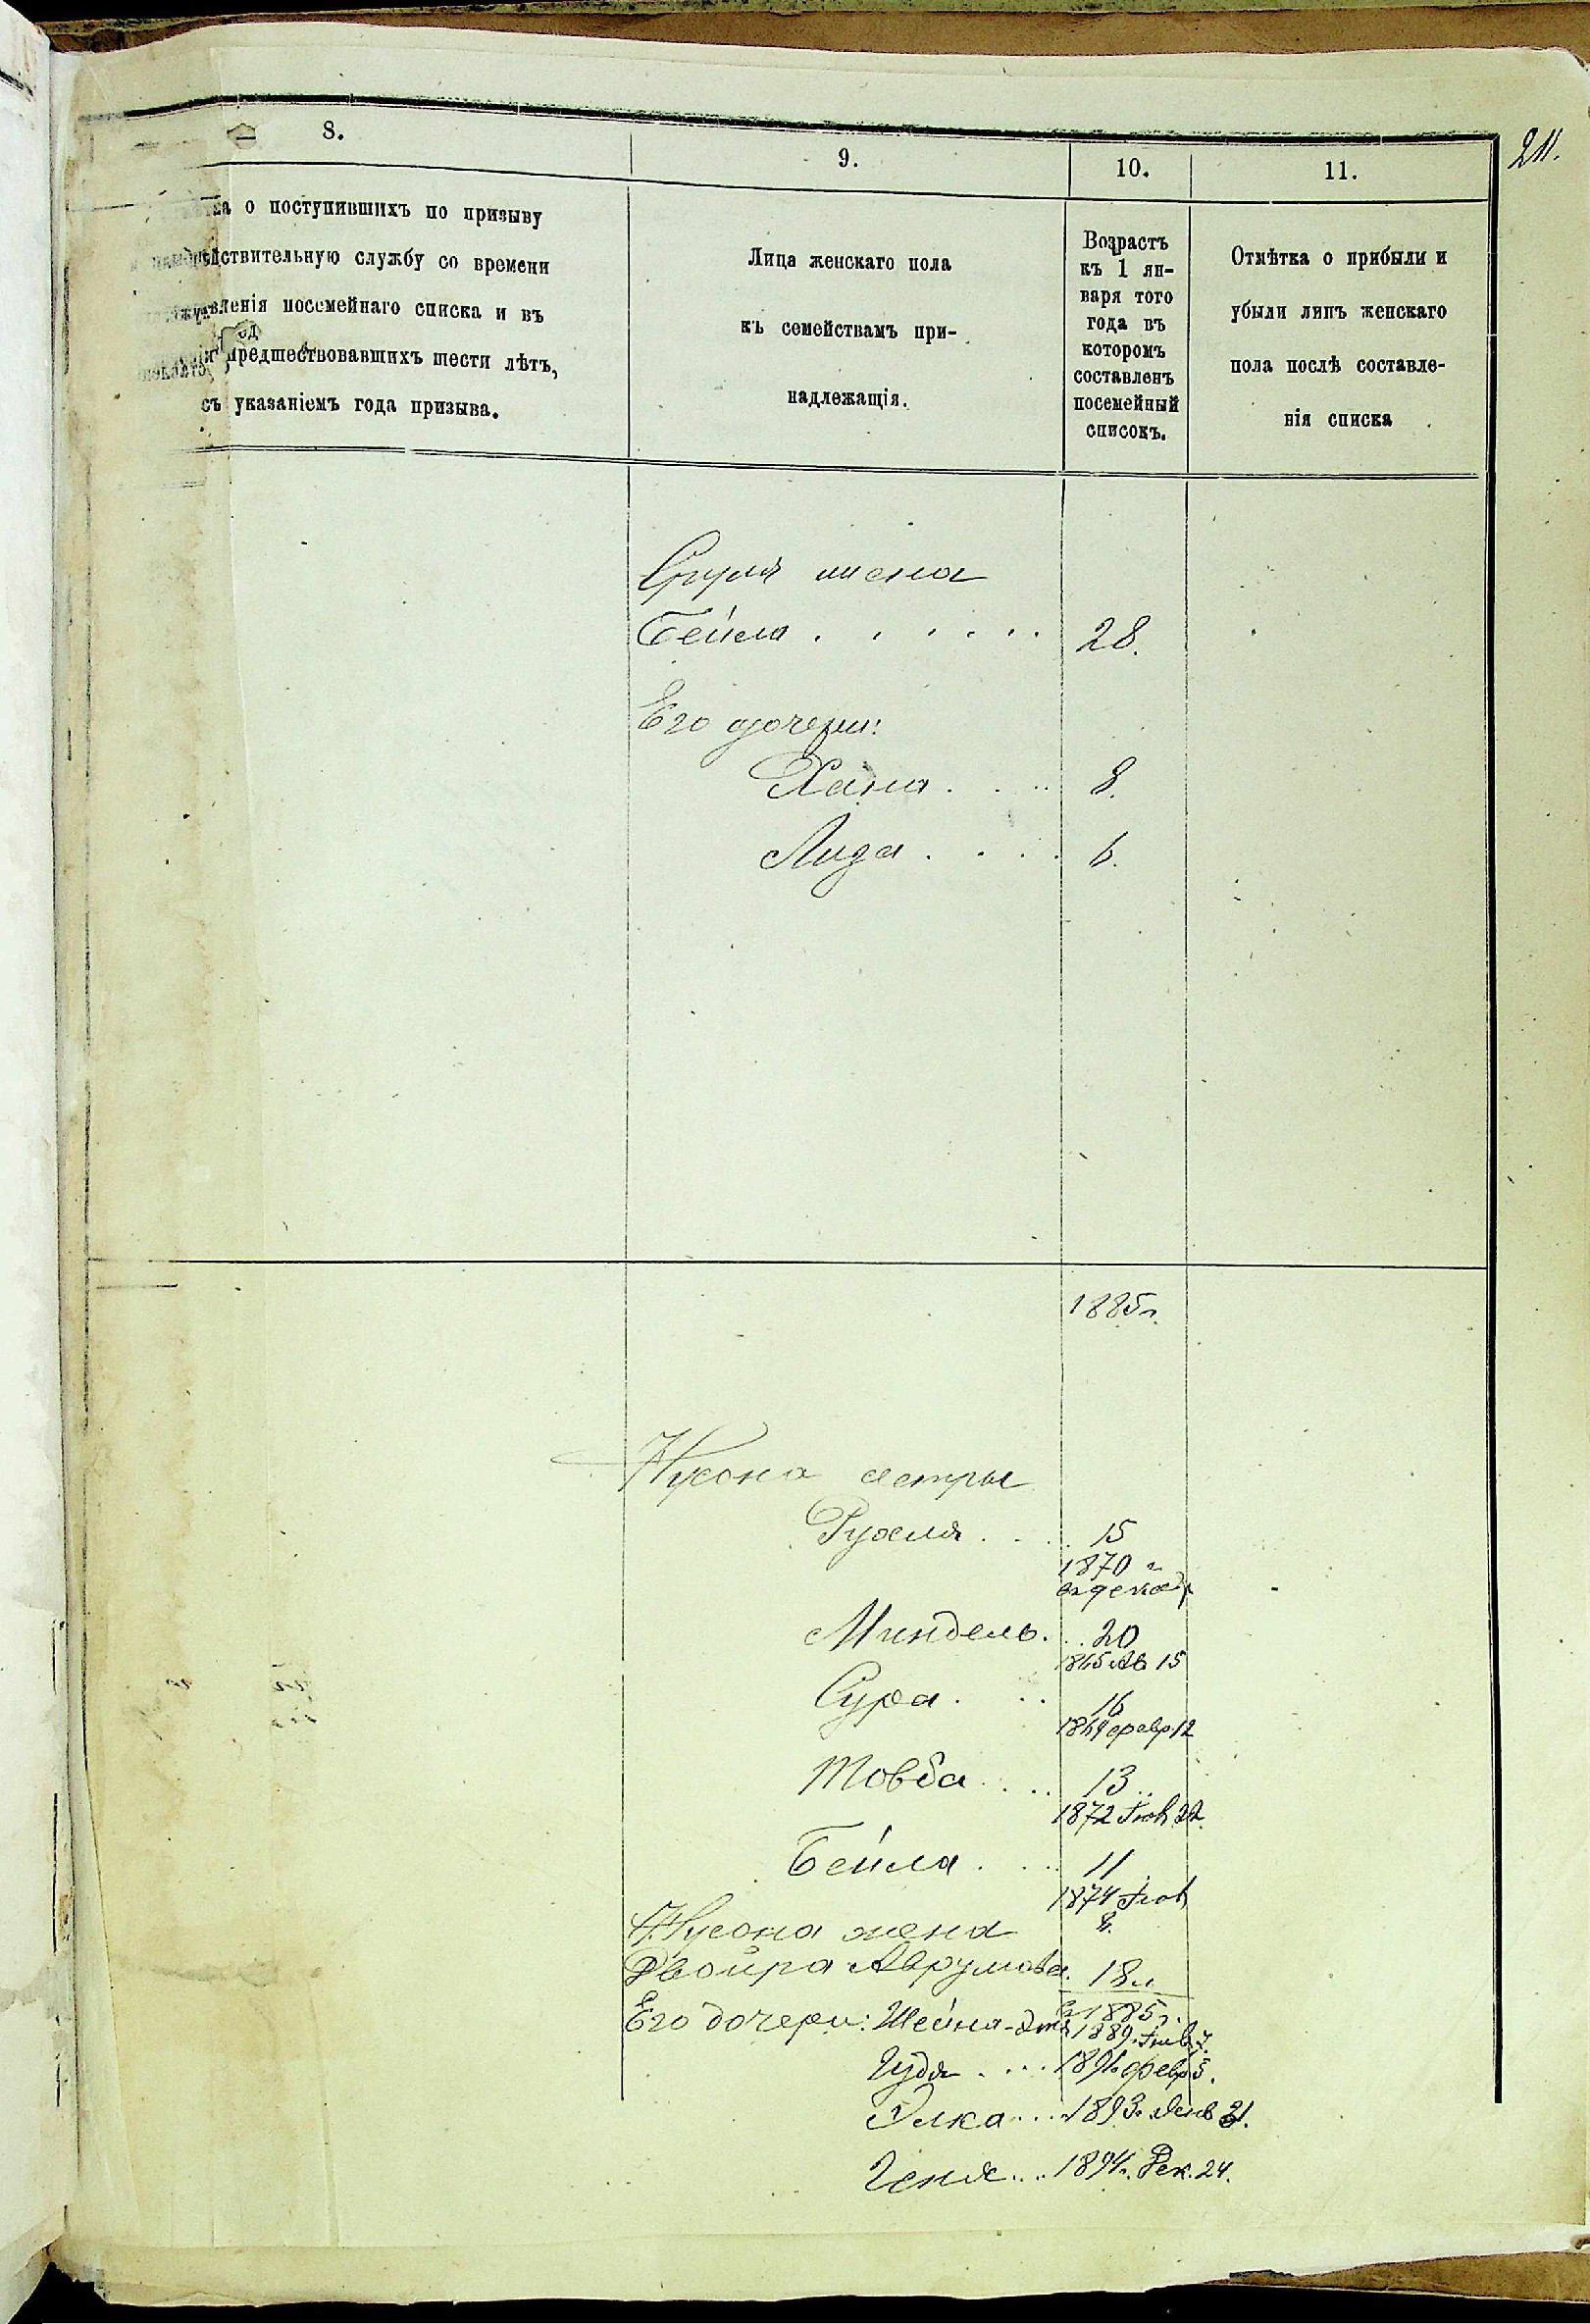 211.
8.
9.
10.
11.
о поступившихъ по призыву
дѣйствительную службу со времени
составленія посемейнаго списка и въ
предшествовавшихъ шести лѣтъ,
съ указаніемъ года призыва.
Лица женскаго пола
къ семействамъ при-
надлежащія.
Возрастъ
къ 1 ян-
варя того
года въ
которомъ
составленъ
посемейный
списокъ.
Отмѣтка о прибыли и
убыли лицъ женскаго
пола послѣ составле-
нія списка
Сруля жена
Бейла . . . . . . 28.
Его дочери:
Хана . . . 8.
Лида . . . . 6.
1885 г.
Нусона сестры
Рухля . . . 15
1870 г.
Миндель . . . 20
1865 Ав 15
Сура . . . 16
1869 февр 12
Товба . . . 13
1872 22.
Бейла . . . 11
1874
8.
Нусона жена
Двойра Аврумова. 18
въ 1885 г.
Его дочери: Шейна- 1889. 7.
Гудя . . . 1891 февр 5.
Элка . . . 1893 г. Янв 31.
Геня . . . 1894 г. Дек. 24.